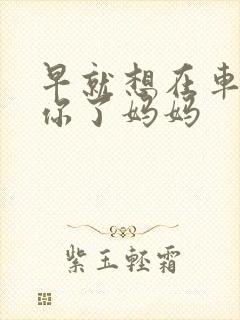 早就想在車
你了妈妈
紫玉輕霜